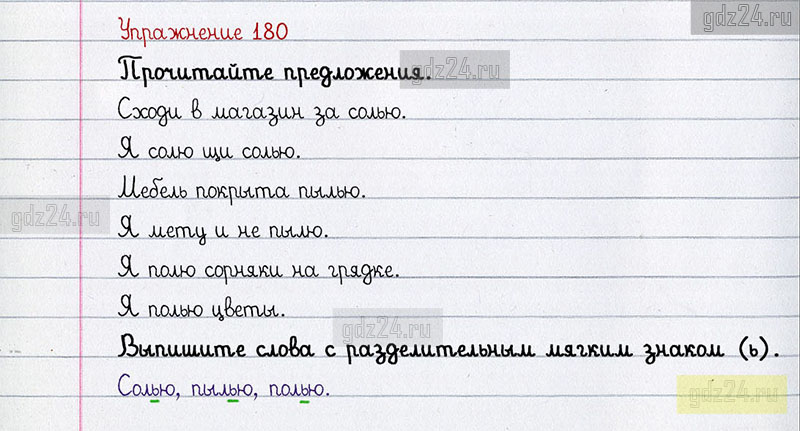 Упражнение 180
gdz24.ru
Прочитайте предложения.
gdz24.ru
Сходи в магазин за солью.
Я солю щи солью.
Мебель покрыта пылью.
gdz24.ru
Я мету и не пылю.
Я полю сорняки на грядке.
Я полью цветы.
gdz24.ru
Выпишите слова с разделительным мягким знаком (ь).
Солью, пылью, полью.
gdz24.ru